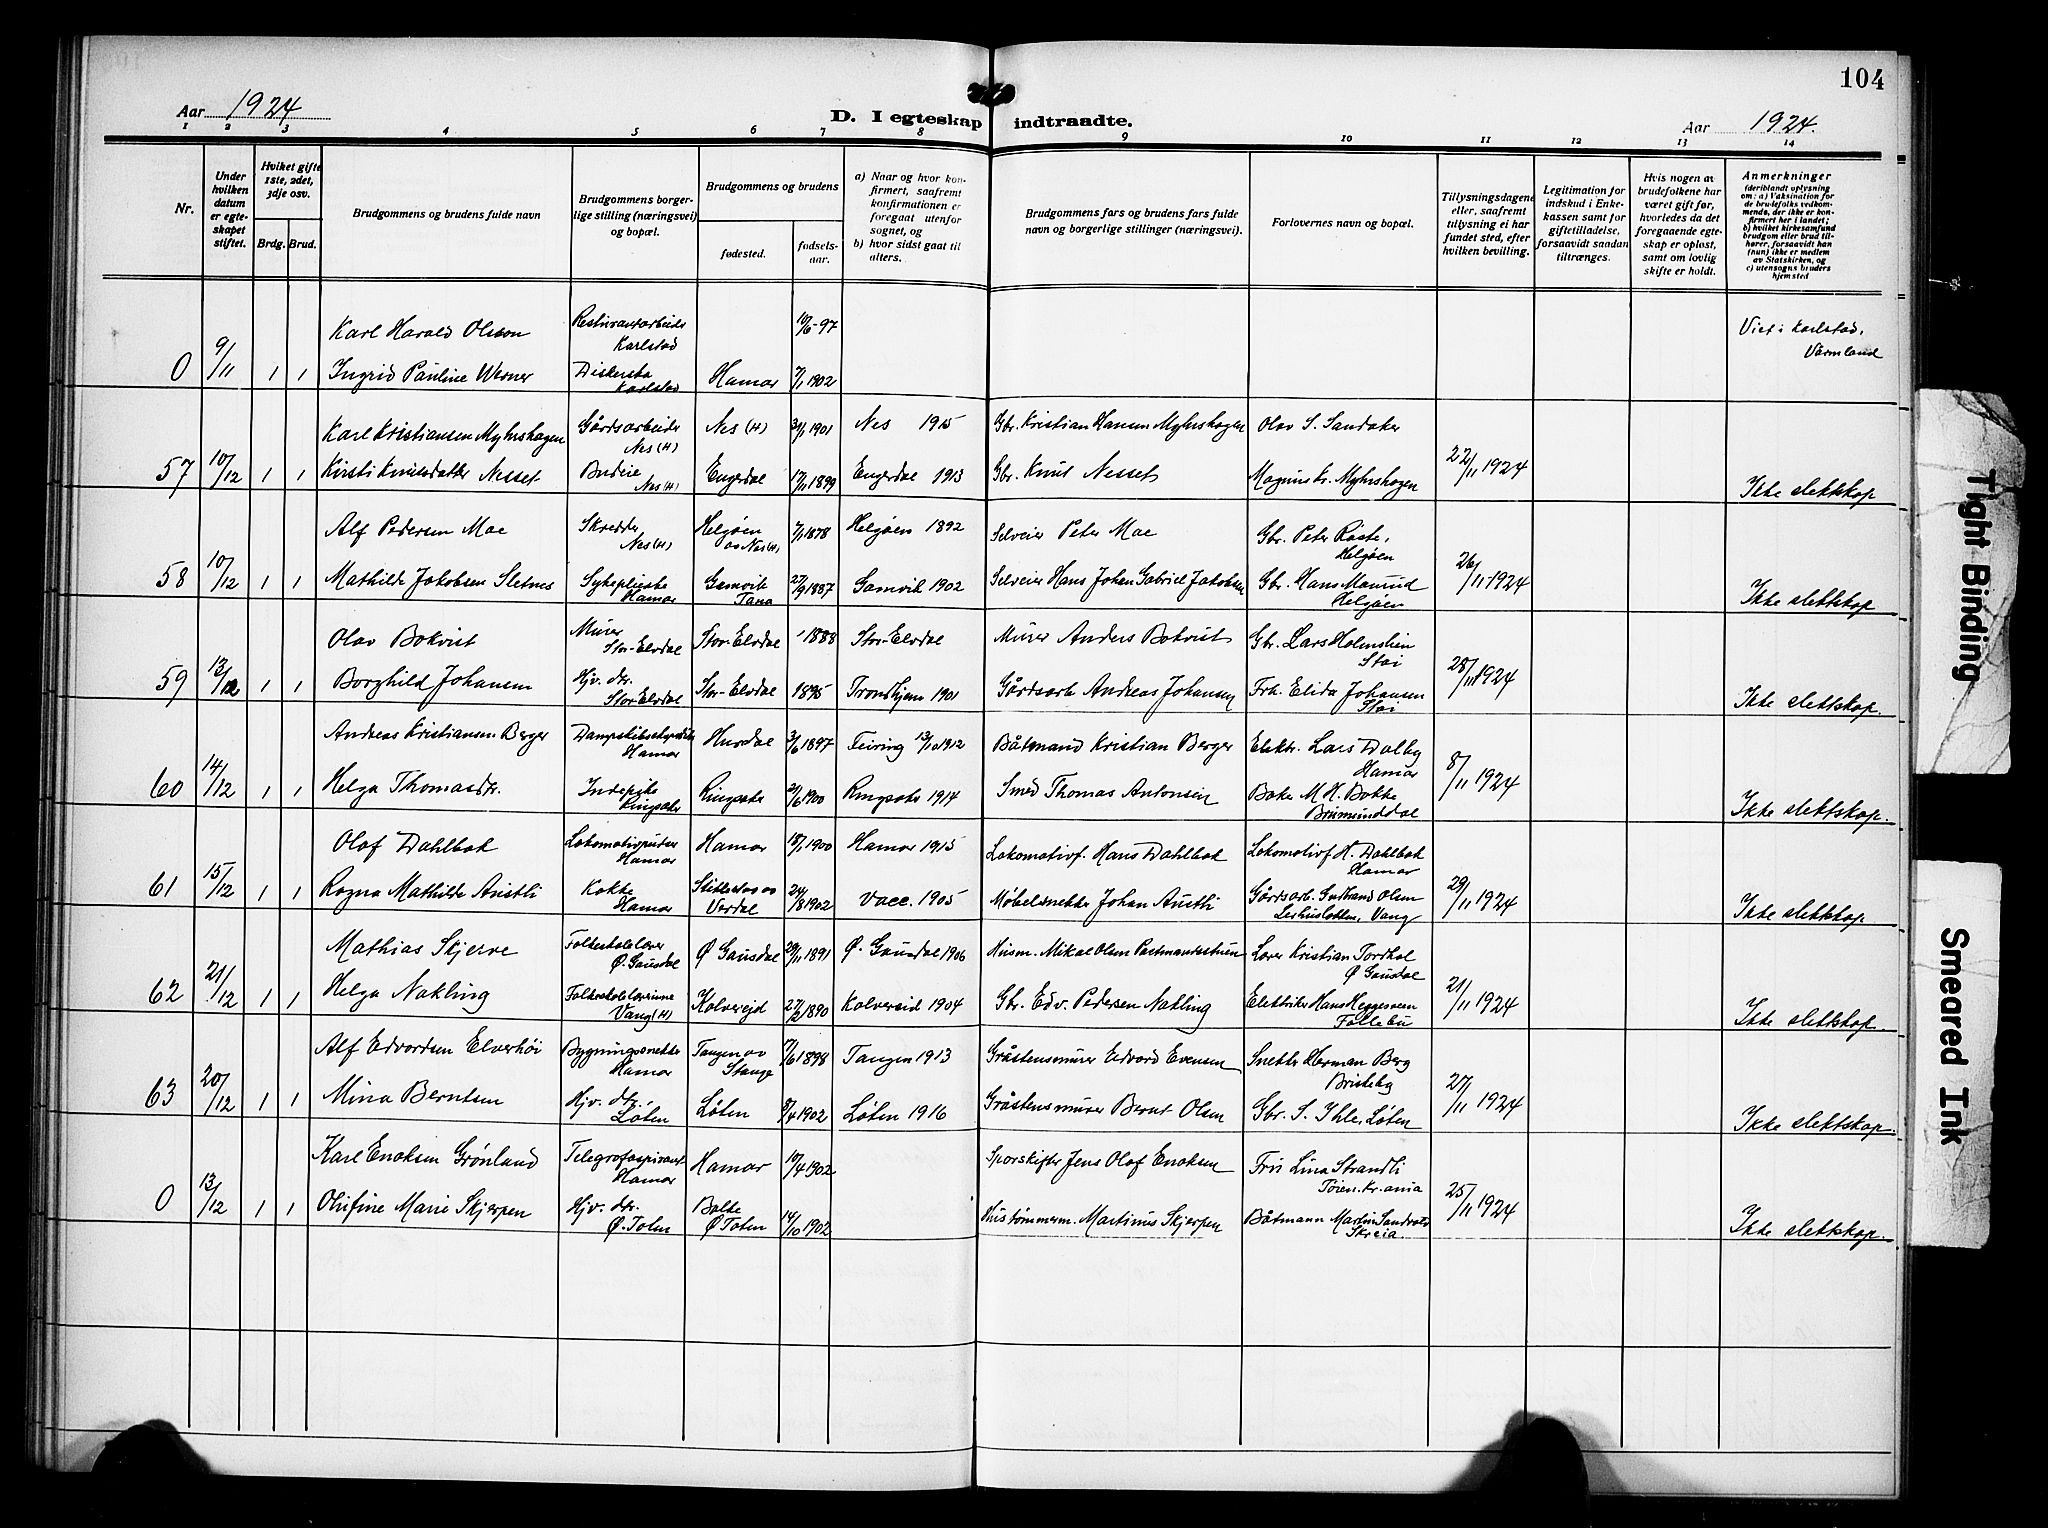 104
Aar 1924
D. I egteskap indtraadte.
Aar 1924.
1 2 3 4 5 6 7 8 9 10 11 12 13 14
Nr.
Under hvilken datum er egteskapet stiftet.
Hvilket gifte 1ste, 2det, 3dje osv.
Brdg. Brud.
Brudgommens og brudens fulde navn
Brudgommens borgerlige stilling (næringsvei) og bopæl.
Brudgommens og brudens
fødested.
fødselsaar.
a) Naar og hvor konfirmert, saafremt konfirmationen er foregaat utenfor sognet, og
b) hvor sidst gaat til alters.
Brudgommens fars og brudens fars fulde navn og borgerlige stillinger (næringsvei).
Forlovernes navn og bopæl.
Tillysningsdagene eller, saafremt tillysning ei har fundet sted, efter hvilken bevilling.
Legitimation for indskud i Enkekassen samt for giftetilladelse, forsaavidt saadan tiltrænges.
Hvis nogen av brudefolkene har været gift før, hvorledes da det foregaaende egteskap er opløst, samt om lovlig skifte er holdt.
Anmerkninger
(deriblandt oplysning om: a) Vaksination for de brudefolks vedkommende, der ikke er konfirmert her i landet; b) hvilket kirkesamfund brudgom eller brud tilhører, forsaavidt han (hun) ikke er medlem av Statskirken, og c) utensogns bruders hjemsted
0 9/11 1 1
Karl Harald Olsson Karlstad 10/6-97 Viet i Karlstad, Värmland
Ingrid Pauline Werner Karlstad Hamar 7/1 1902
57 10/12 1 1
Karl Kristiansen Myhrshagen Gårdsarbeider Nes (H) Nes (H) 31/1 1901 Nes 1915 Gbr. Kristian Hansen Myhrshagen Olav S. Sandaker
Kirsti Knutsdatter Nesset Budeie Nes (H) Engerdal 17/11 1899 Engerdal 1913 Gbr. Knut Nesset Magnus Kr. Myhrshagen 22/11 1924 Ikke slektskap
58 10/12 1 1
Alf Pedersen Moe Skredder Nes (H) Helgøen av Nes (H) 7/1 1878 Helgøen 1892 Selveier Peter Moe Gbr. Peter Røste, Helgøen
Mathilde Jakobsen Sletnes Sykepleiske Hamar Gamvik Tana 27/9 1887 Gamvik 1902 Selveier Hans Johan Gabriel Jakobsen Gbr. Hans Mamrud Helgøen 26/11 1924 Ikke slektskap
59 13/12 1 1
Olav Bokvist Murer Stor-Elvdal Stor-Elvdal 1888 Stor-Elvdal Murer Anders Bokvist Gbr. Lars Holmstien Stai
Borghild Johansen Hjv. dtr. Stor-Elvdal Stor-Elvdal 1895 Trondhjem 1901 Gårdsarb. Andreas Johansen Frk. Elida Johansen Stai 28/11 1924 Ikke slektskap.
60 14/12 1 1
Andreas Kristiansen Berger Hamar Hurdal 3/6 1897 Feiring 13/10 1912 Båtsmand Kristian Berger Elektr. Lars Dalby Hamar
Helga Thomasdtr. Indepike Ringsaker Ringsaker 21/6 1900 Ringsaker 1914 Smed Thomas Antonsen Baker M. H. Bakke Brumunddal 8/11 1924 Ikke slektskap.
61 15/12 1 1
Olaf Dahlbak Lokomotivpudser Hamar Hamar 18/1 1900 Hamar 1915 Lokomotivf. Hans Dahlbak Lokomotivf H. Dahlbak Hamar
Ragna Mathilde Austli Kokke Hamar Stiklestad av Verdal 24/8 1902 vacc. 1905 Møbelsnekker Johan Austli Gårdsarb. Gudbrand Olsen Vang 29/11 1924 Ikke slektskap
62 21/12 1 1
Mathias Skjerve Folkeskolelærer Ø. Gausdal Ø Gausdal 29/11 1891 Ø. Gausdal 1906 Husm. Mikal Olsen Lærer Kristian Tordhol Ø Gausdal
Helga Nakling Folkeskolelærerinne Vang (H) Kolvereid 27/2 1890 Kolvereid 1904 Gbr. Edv. Pedersen Nakling Elektriker Hans Heggesveen Follebu 21/11 1924 Ikke slektskap.
63 20/12 1 1
Alf Edvardsen Elverhøi Bygningssnekker Hamar Tangen av Stange 7/6 1898 Tangen 1913 Gråstensmurer Edvard Evensen Snekker Herman Berg Brisleby
Mina Berntsen Hjv. dtr. Løten Løten 8/4 1902 Løten 1916 Gråstensmurer Bernt Olsen Gbr. S. Ihle, Løten 27/11 1924 Ikke slektskap.
0 13/12 1 1
Karl Enoksen Grønland Telegrafaspirant Hamar Hamar 10/4 1902 Sporskifter Jens Olaf Enoksen Fru Lina Strandli Tøien Kr.ania
Olufine Marie Skjerpen Hjv. dtr. Ø. Toten Balke Ø Toten 14/10 1902 Hustømmerm. Martinus Skjerpen Båtmann Martin Sandvold Skreia. 25/11 1924 Ikke slektskap.
Tight Binding
Smeared Ink